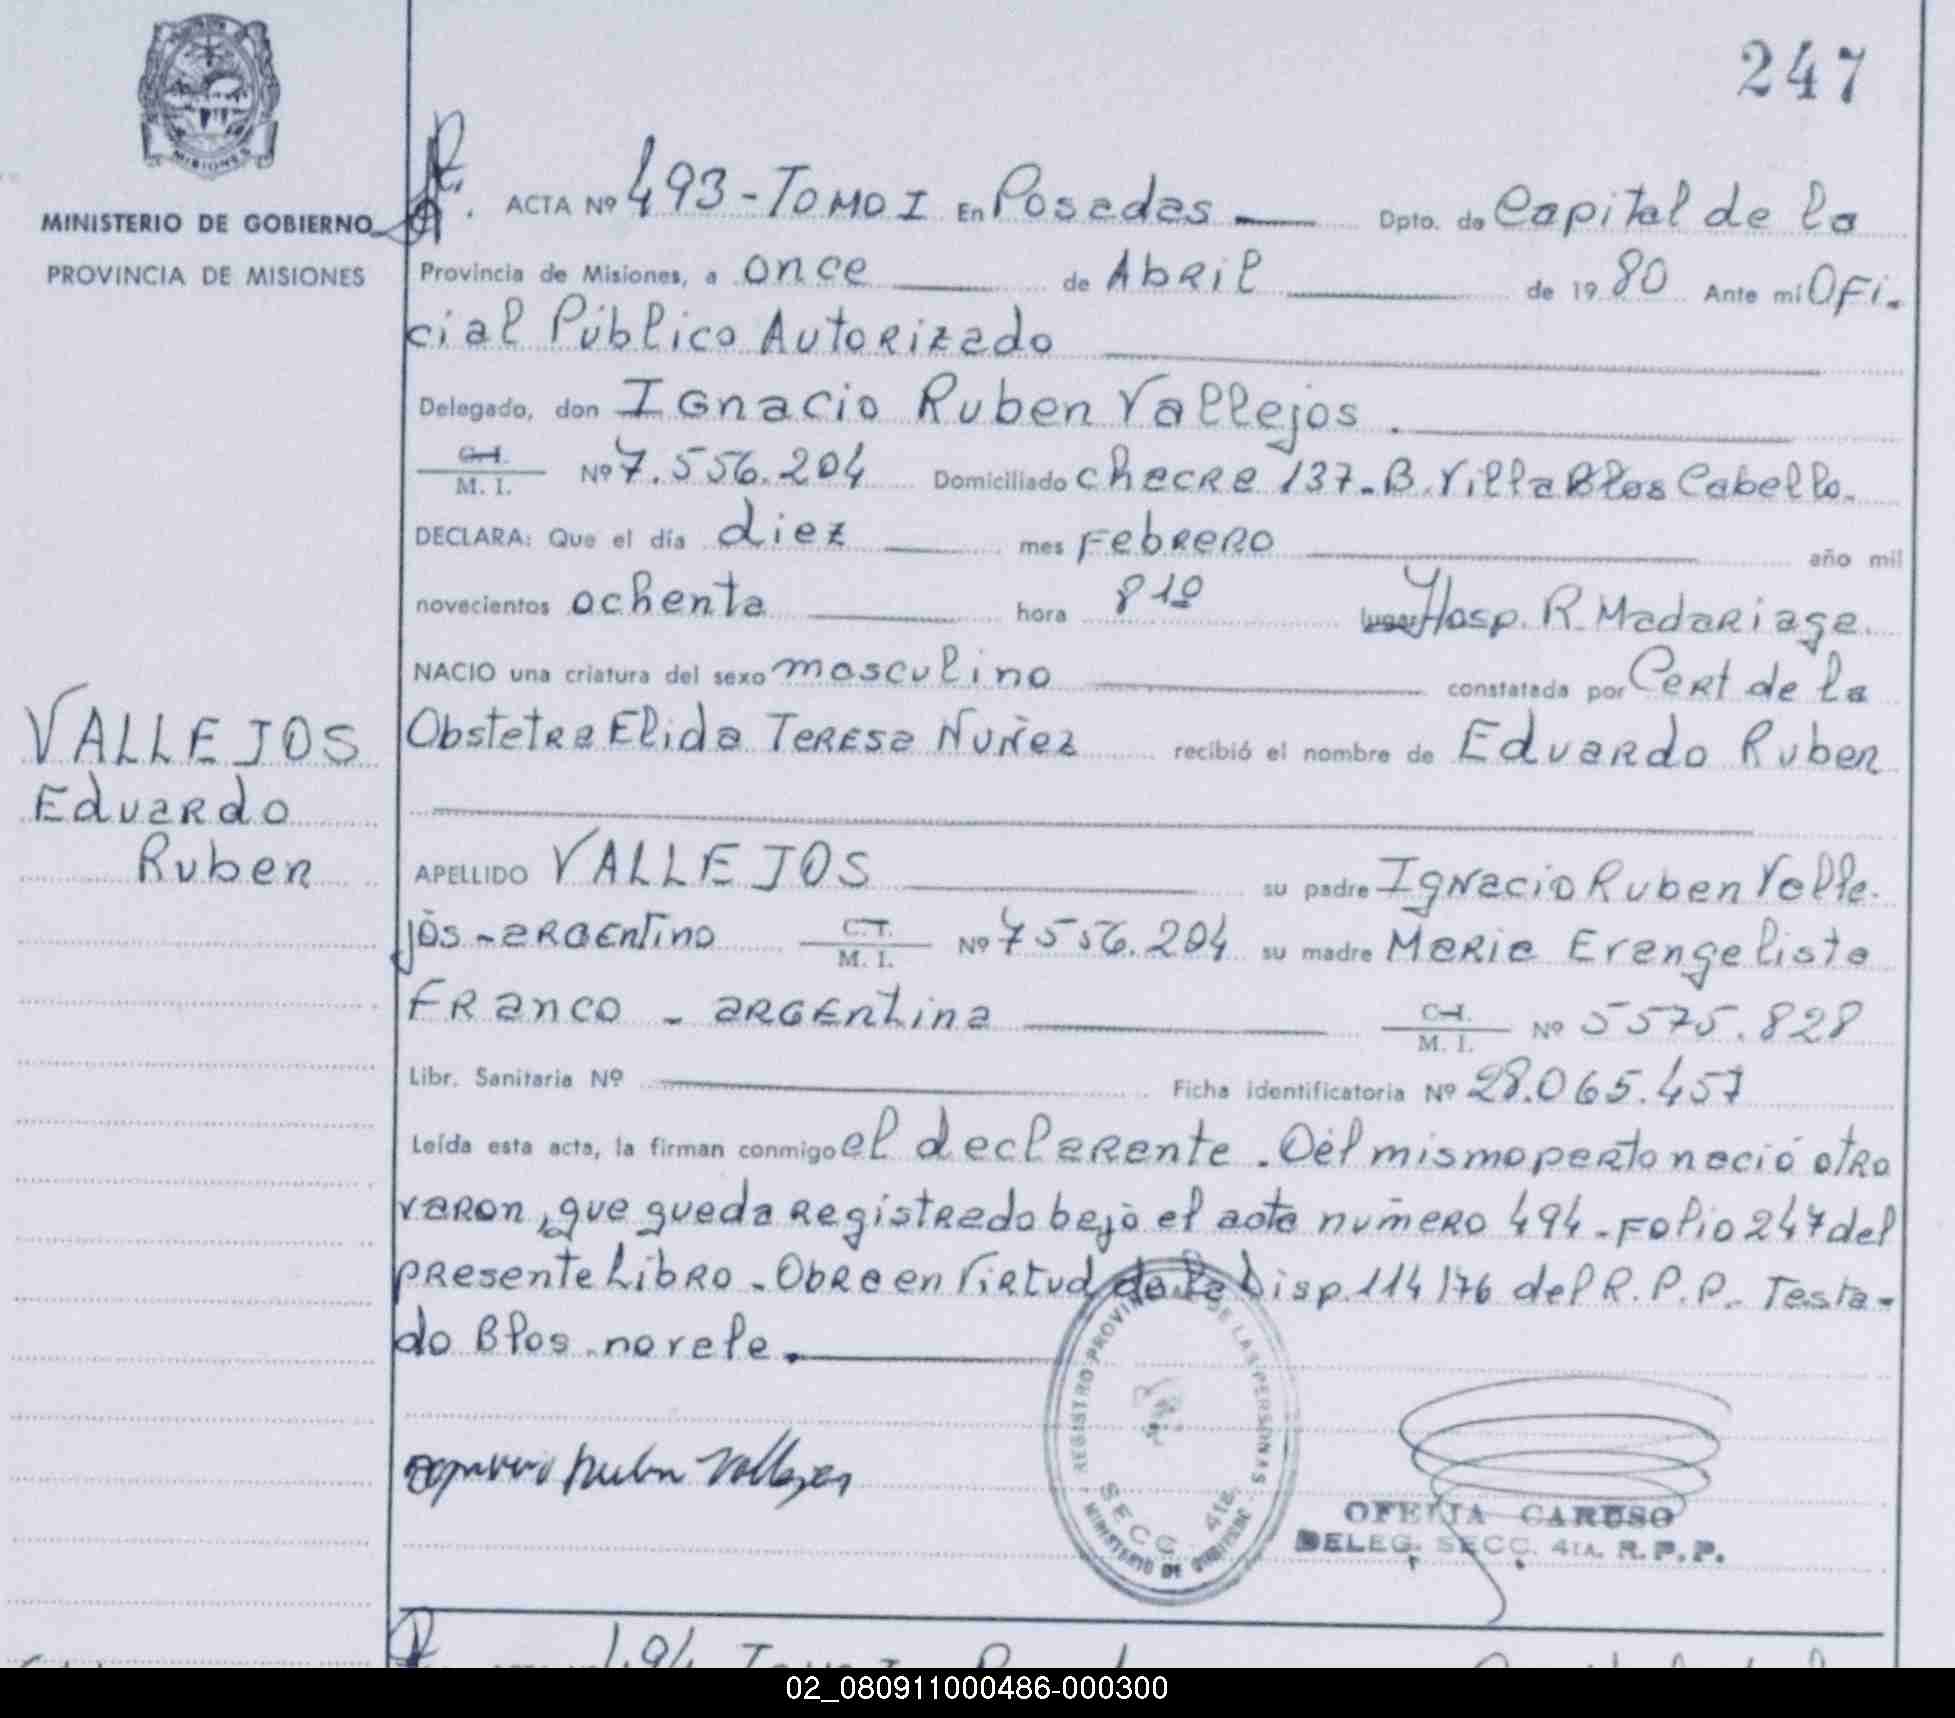 247
MISIONES
MINISTERIO DE GOBIERNO
PROVINCIA DE MISIONES
ACTA Nº 493 - TOMO I En Posadas Dpto. de Capital de la
Provincia de Misiones, a once de Abril de 1980 Ante mi Ofi-
cial Público Autorizado
Delegado, don Ignacio Ruben Vallejos.
C. I.
M. I. Nº 7.556.204 Domiciliado Chacra 137 - B. Villa Blos Cabello.
DECLARA: Que el día diez mes Febrero año mil
novecientos ochenta hora 8 10 lugar Hosp. R. Madariaga.
NACIO una criatura del sexo masculino constatada por Cert de la
Obstetra Elida Teresa Nuñez recibió el nombre de Eduardo Ruben
VALLEJOS
Eduardo
Ruben
APELLIDO VALLEJOS su padre Ignacio Ruben Valle-
jos - argentino C. I.
M. I. Nº 7556.204 su madre Maria Evangelista
Franco - argentina C. I.
M. I. Nº 5575.828
Libr. Sanitaria Nº Ficha identificatoria Nº 28.065.457
Leída esta acta, la firman conmigo el declarante. Del mismo parto nació otro
varon, que queda registrado bajo el acta número 494 - Folio 247 del
presente Libro - Obra en Virtud de la Disp. 114/76 del R.P.P. Testa-
do Blos. no vale.
Ruben Vallejos
REGISTRO PROVINCIAL DE LAS PERSONAS
SECC. 4ta.
MINISTERIO DE GOBIERNO
OFELIA CARUSO
DELEG. SECC. 4TA. R.P.P.
02_080911000486-000300